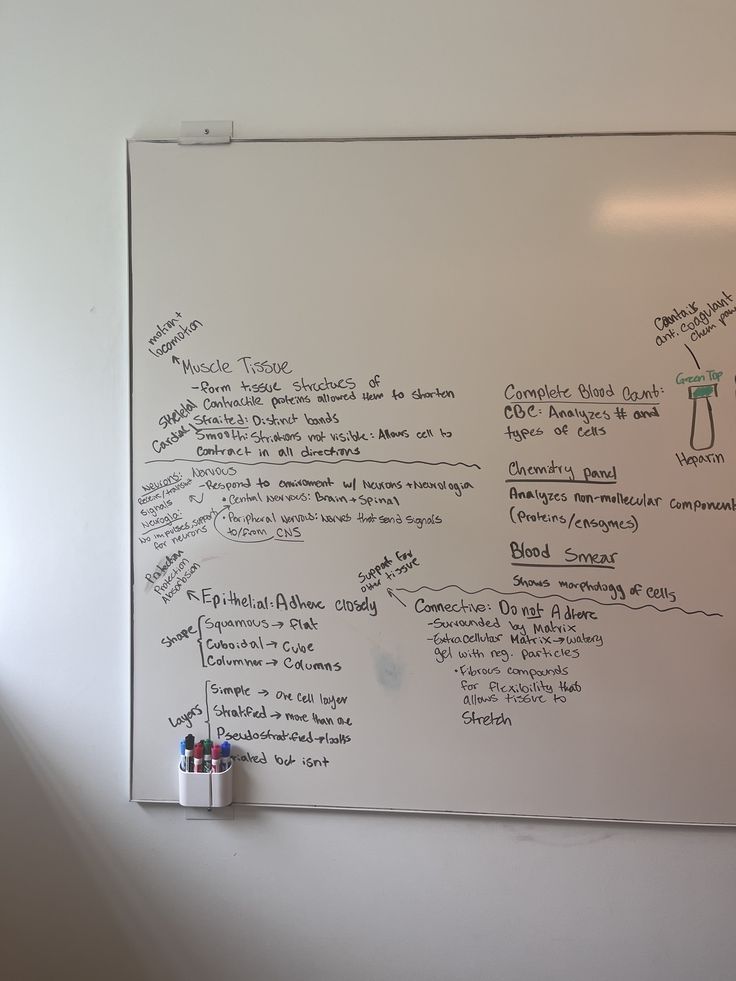 motion +
locomotion
Muscle Tissue
-form tissue structures of
Contractile proteins allowed them to shorten
Skeletal
Cardiac
Straited: Distinct bands
Smooth: Striations not visible: Allows cell to
contract in all directions
Neurons:
Receive/transmit
signals
Neuroglo:
No impulses, support
for neurons
Nervous
-Respond to enviroment w/ Neurons + Neurologia
• Central Nervous: Brain + Spinal
• Peripheral Nervous: Nerves that send signals
to/from CNS
Protection
Absorbsion
Epithelial: Adhere closely
Shape
Squamous → flat
Cuboidal → Cube
Columner → Columns
Layers
Simple → one cell layer
Stratified → more than one
Pseudostratified → looks
but isnt
Support for
other tissue
Connective: Do not Adhere
-Surrounded by Matrix
-Extracellular Matrix → watery
gel with neg. particles
• Fibrous compounds
for flexibility that
allows tissue to
Stretch
Complete Blood Count:
CBC: Analyzes # and
types of cells
Chemistry panel
Analyzes non-molecular component
(Proteins/ensymes)
Blood Smear
Shows morphology of cells
Contais
anti-coagulant
chem
Green Top
Heparin